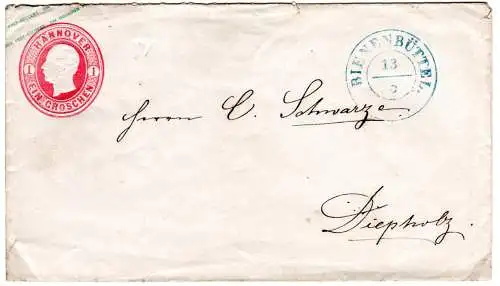 HANNOVER
1 1
EIN GROSCHEN
BIENENBÜTTEL
13
2
Herrn C. Schwarze.
Diepholz.